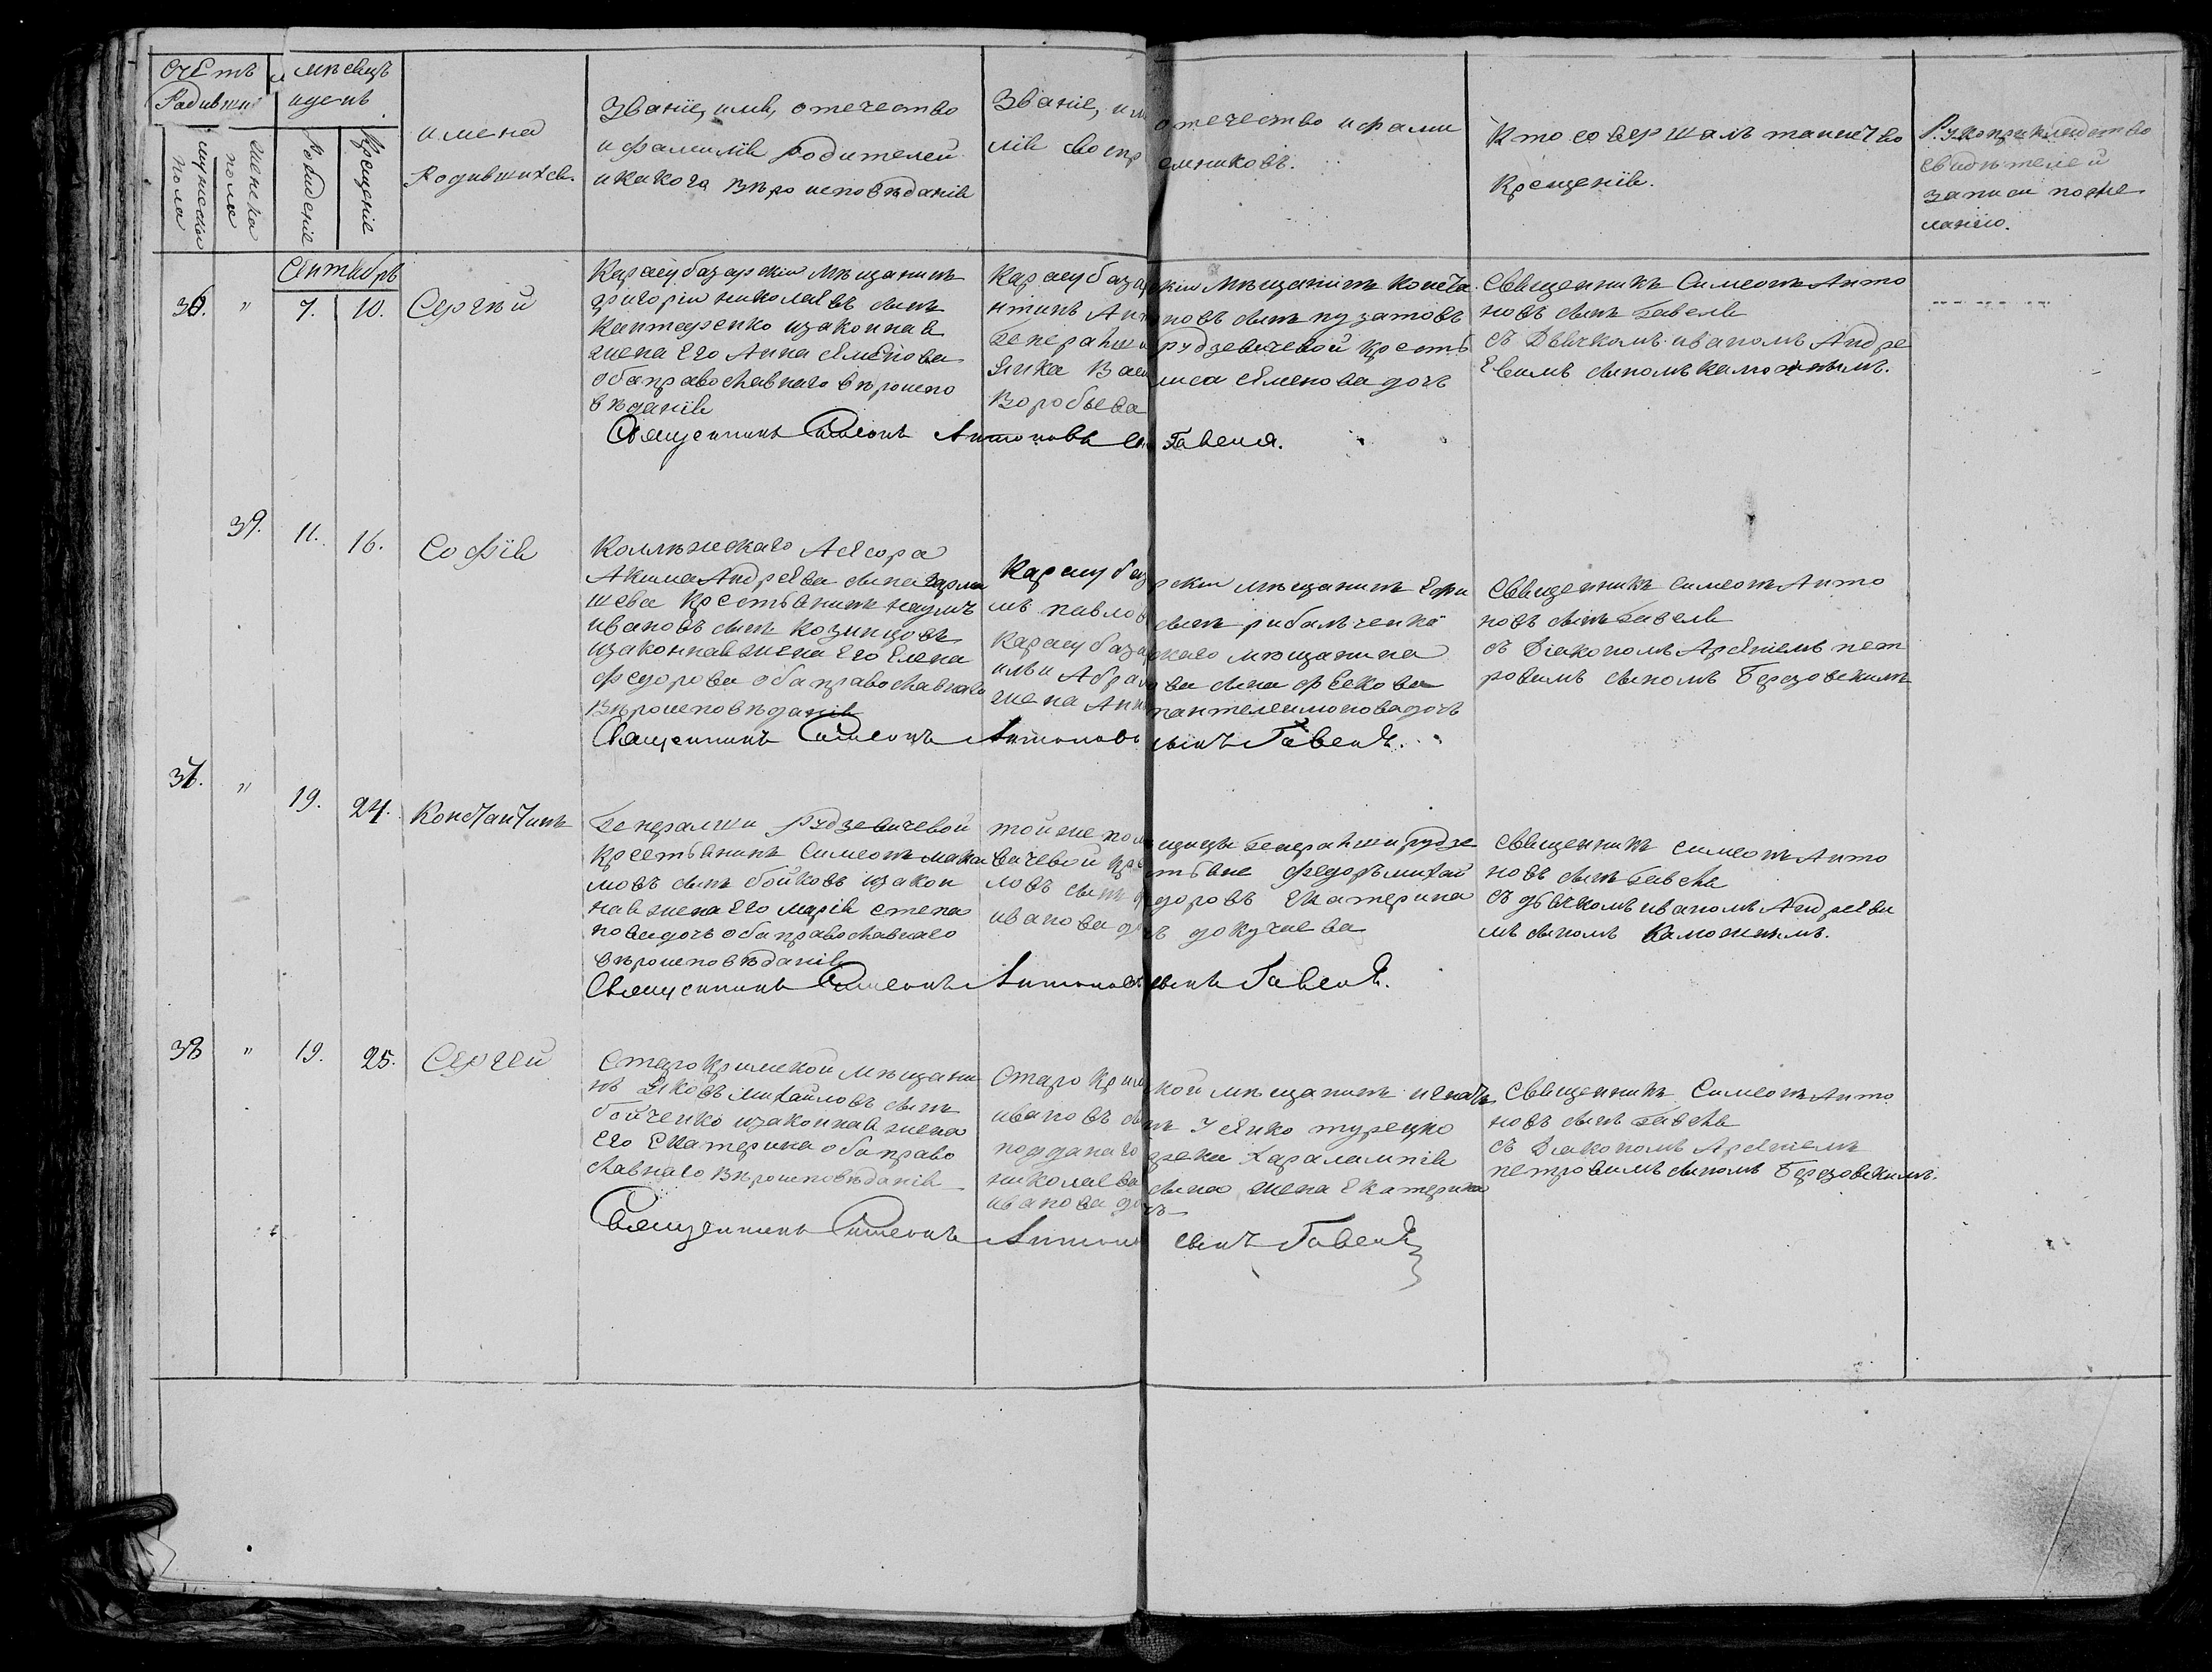 Счетъ
Радивши
мѣсяцъ
и день
мужеска
пола
женска
пола
Рождение
Крещение
имена
Родившихся.
Званіе, имя, отечество
и фамилія родителей
и какого вѣроисповѣданія
Званіе, им отечество и фами
лія воспр емниковъ.
Кто совершалъ таинство
Крещенія.
Рукоприкладство
свидѣтелей
записи по же
ланію.
Сентябрь
36. " 7. 10. Сергѣй
Карасубазарскій мѣщанинъ
григорій николаевъ сынъ
Кантаренко и законная
жена его Анна Семенова
оба православнаго вѣроиспо
вѣданія
Карасубаза скій мѣщанинъ конста
нтинъ Ант новъ сынъ пузатовъ
генеральши рудзевичевой кресть
янка Васи лиса Семенова дочь
Воробьева
Священникъ Симеонъ Анто
новъ сынъ Гавеля
съ Дьячкомъ иваномъ Андре
евымъ сыномъ каможнымъ.
Священникъ Симеонъ Антоновъ сы Гавеля.
39. 11. 16. Софія
Коллежскаго Асесора
Акима Андреева сына
шева крестьянинъ наумъ
ивановъ сынъ козинцовъ
и законная жена его Елена
федорова оба православнаго
вѣроисповѣданія
Карасубаз рскій мѣщанинъ Ефи
мъ павлов сынъ рибальченко
Карасубаза скаго мѣщанина
ильи Абрам ва сына фескова
жена Анн пантелеимонова дочь
Священникъ симеонъ Анто
новъ сынъ Гавеля
съ Діакономъ Арсѣніемъ пет
ровымъ сыномъ Березовскимъ
Священникъ Симеонъ Антоновъ сынъ Гавеля.
37. " 19. 24. Константинъ
Генералши Рудзевичевой
крестьянинъ Симеонъ макси
мовъ сынъ бойковъ и закон
ная жена его марія степа
нова дочь оба православнаго
вѣроисповѣданія
той же пом щицы Генеральши рудзе
вичевой кре тьяне федоръ михай
ловъ сынъ доровъ Екатерина
иванова до ь докучаева
Священникъ симеонъ Анто
новъ сынъ Гавеля
съ дьячкомъ иваномъ Андреевы
мъ сыномъ Каможнымъ.
Священникъ Симеонъ Антоновъ сынъ Гавеля.
38 " 19. 25. Сергей
Старокримской мѣщани
нъ Яковъ михайловъ сынъ
бойченко и законная жена
Его Екатерина оба право
славнаго вѣроисповѣданія
Старокрим кой мѣщанинъ
ивановъ сы нъ Усянко турецко
подданаго грека Харалампія
николаева сына жена Екатерина
иванова до чь
Священникъ Симеонъ Анто
новъ сынъ Гавеля
съ Діакономъ Арсѣніемъ
петровымъ сыномъ Березовскимъ.
Священникъ Симеонъ Антоно сынъ Гавеля